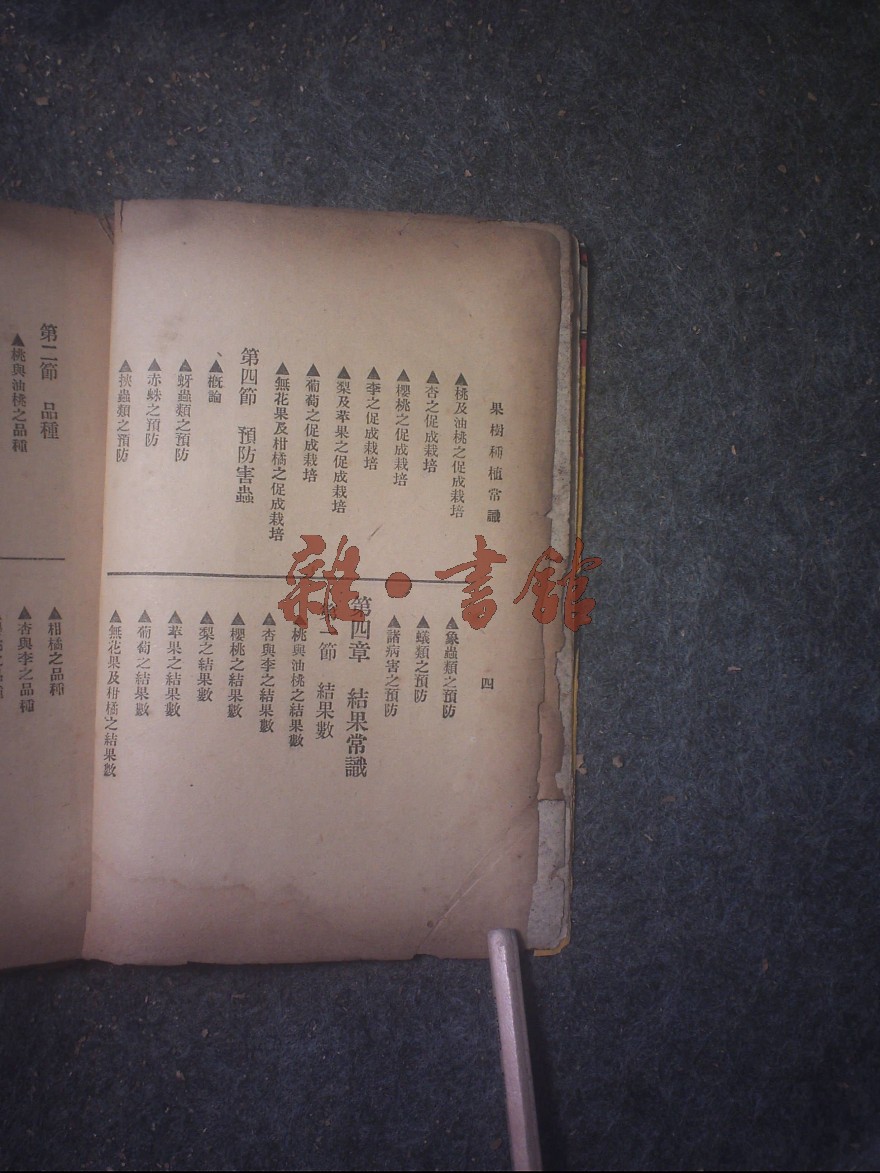 果樹種植常識
四
▲桃及油桃之促成栽培
▲杏之促成栽培
▲櫻桃之促成栽培
▲李之促成栽培
▲梨及苹果之促成栽培
▲葡萄之促成栽培
▲無花果及柑橘之促成栽培
第四節 預防害蟲
▲概論
▲蚜蟲類之預防
▲赤蛛之預防
▲挾蟲類之預防
▲象蟲類之預防
▲蟻類之預防
▲諸病害之預防
第四章 結果常識
第一節 結果數
▲桃與油桃之結果數
▲杏與李之結果數
▲櫻桃之結果數
▲梨之結果數
▲苹果之結果數
▲葡萄之結果數
▲無花果及柑橘之結果數
第二節 品種
▲桃與油桃之品種
▲柑橘之品種
▲杏與李之品種
雜·書館